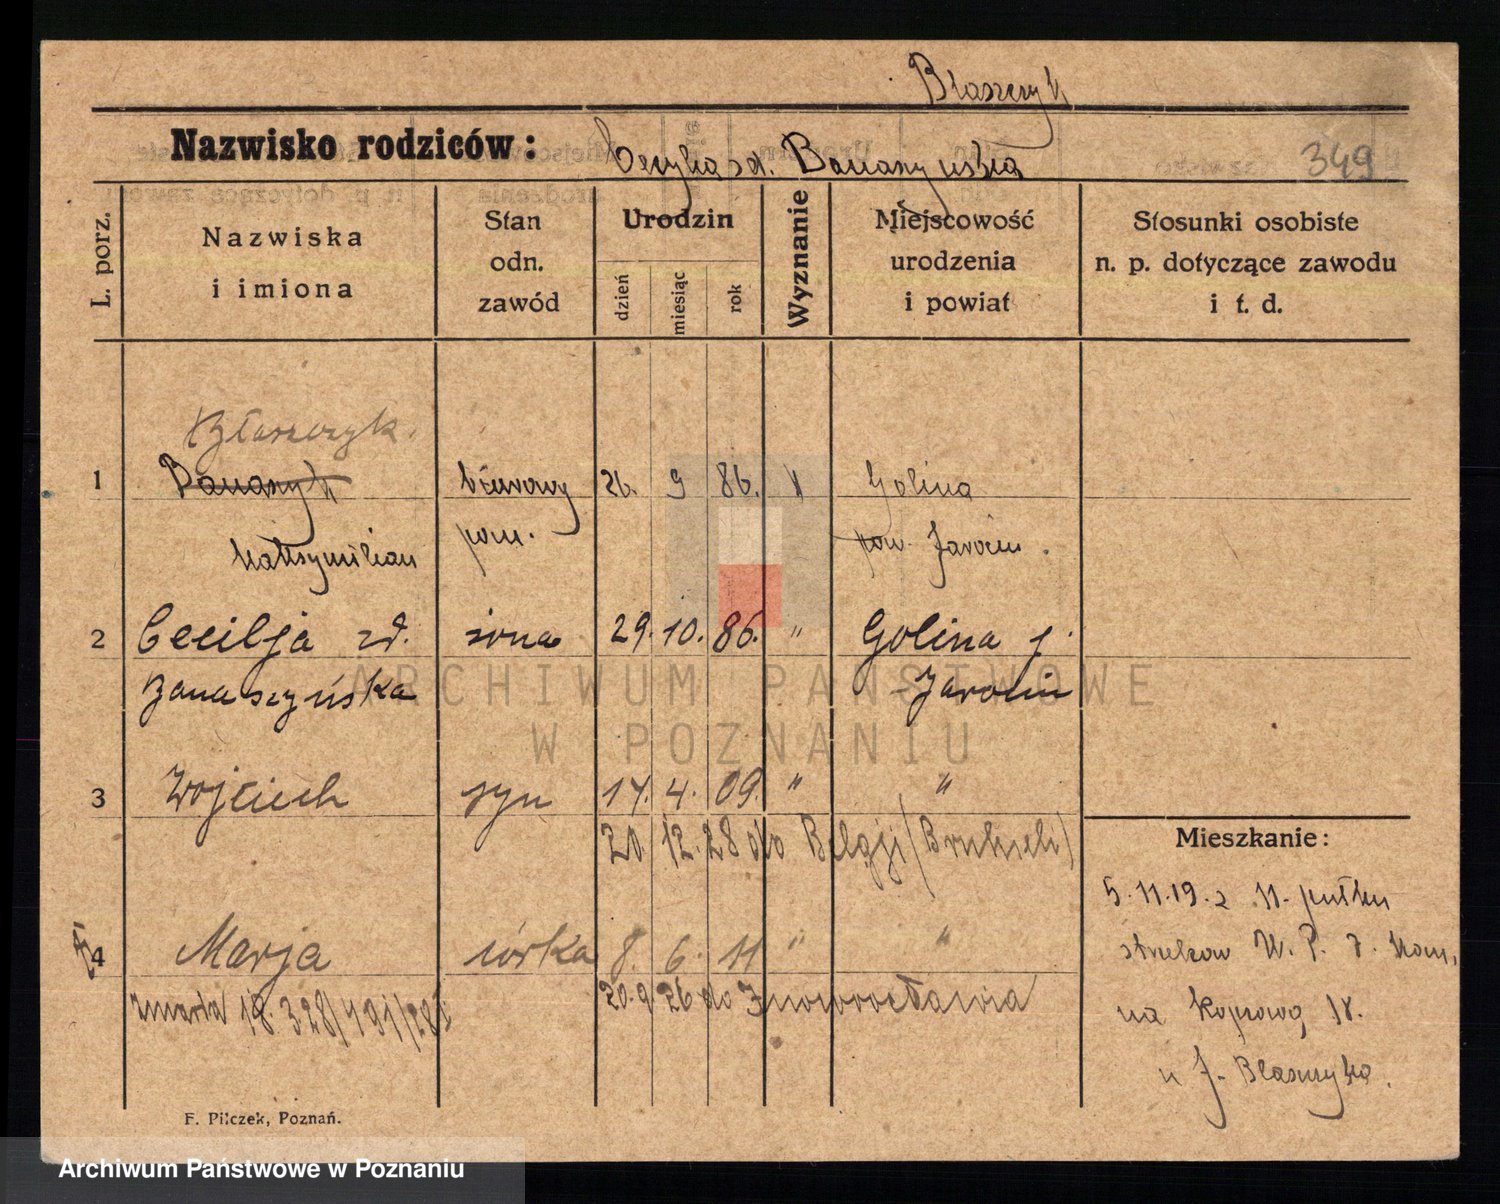 Błaszczyk
Nazwisko rodziców:
z d.
349
L. porz.
Nazwiska
i imiona
Stan
odn.
zawód
Urodzin
dzień
miesiąc
rok
Wyznanie
Miejscowość
urodzenia
i powiat
Stosunki osobiste
n. p. dotyczące zawodu
i t. d.
Błaszczyk.
1 26. 9 86. Golina
Maksymilian pom. pow. Jarocin.
2 Cecilja zd. żona 29. 10. 86. " Golina j.
Banaszyńska Jarocin
3 Wojciech syn 17. 4. 09. " "
20. 12. 28 do Belgji (Brukseli)
4 Marja córka 8. 6. 11 " "
zmarła 18. 3 28/ 20. 9. 26 do Inowrocławia
Mieszkanie:
5. 11. 19. z 11. pułku
W. P.
na 18.
u J. Błaszczyka.
F. Pilczek, Poznań.
ARCHIWUM PAŃSTWOWE
W POZNANIU
Archiwum Państwowe w Poznaniu